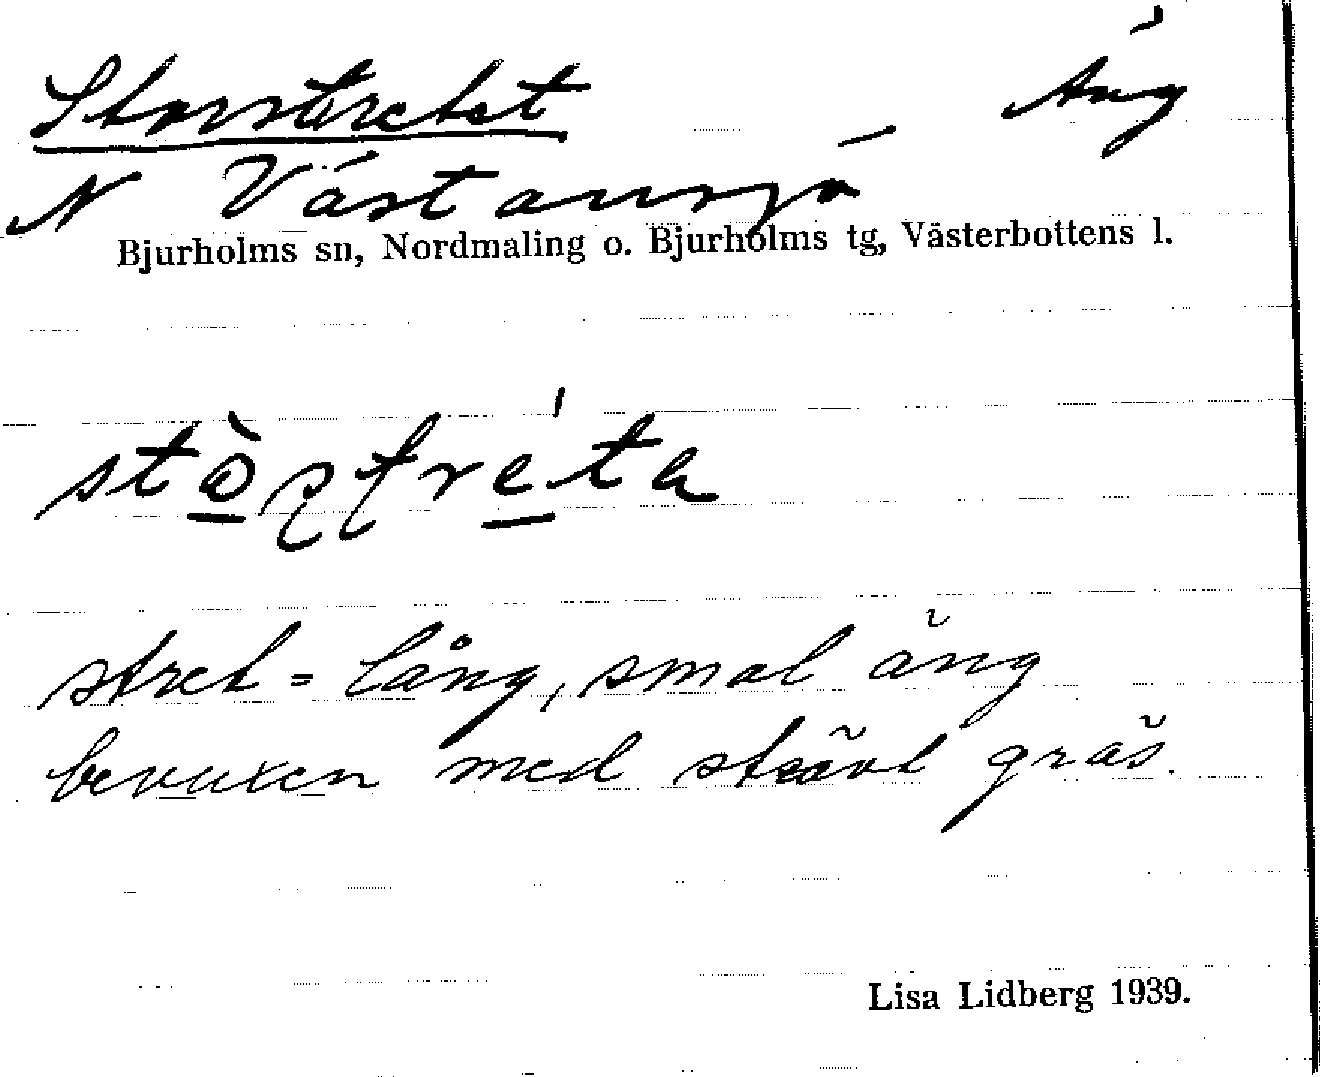 Storstretet Äng
N Västansjö
Bjurholms sn, Nordmaling o. Bjurholms tg, Västerbottens l.
stret = lång, smal äng
bevuxen med strävt gräs.
Lisa Lidberg 1939.